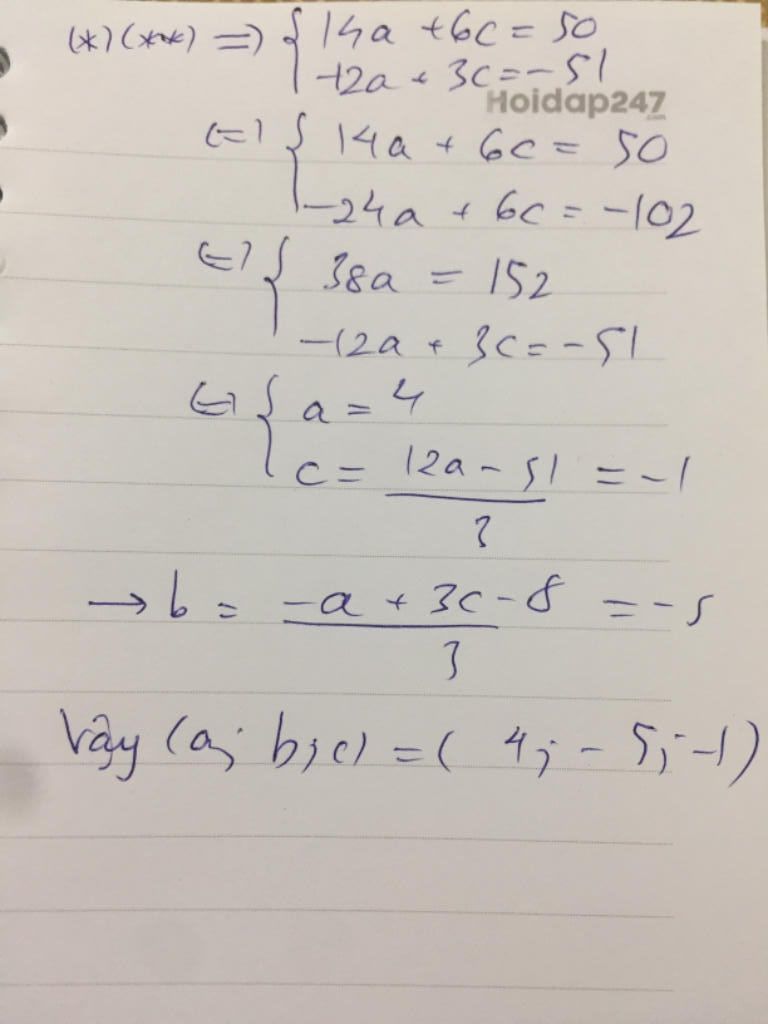 (*)(**) => { 14a + 6c = 50
-12a + 3c = -51
Hoidap247
.com
<=> { 14a + 6c = 50
-24a + 6c = -102
<=> { 38a = 152
-12a + 3c = -51
<=> { a = 4
c = 12a - 51 / 3 = -1
→ b = -a + 3c - 8 / 3 = -5
Vậy (a; b; c) = ( 4; - 5; -1)